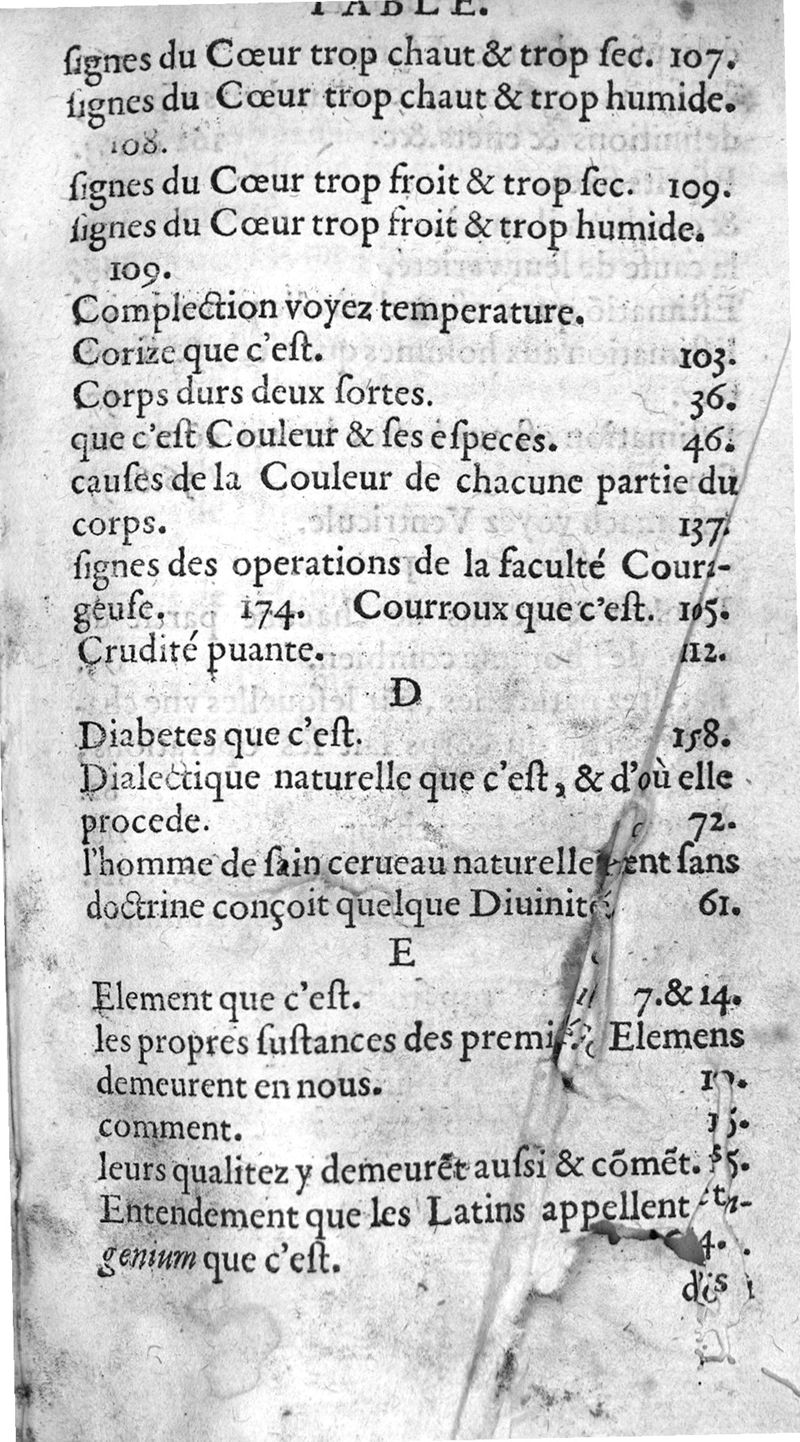 TABLE.
ſignes du Cœur trop chaut & trop ſec. 107.
ſignes du Cœur trop chaut & trop humide.
108.
ſignes du Cœur trop froit & trop ſec. 109.
ſignes du Cœur trop froit & trop humide.
109.
Complection voyez temperature.
Corize que c'eſt. 103.
Corps durs deux ſortes. 36.
que c'eſt Couleur & ſes eſpeces. 46.
cauſes de la Couleur de chacune partie du
corps. 137.
ſignes des operations de la faculté Coura-
geuſe, 174. Courroux que c'eſt. 105.
Crudité puante. 112.
D
Diabetes que c'eſt. 158.
Dialectique naturelle que c'eſt, & d'où elle
procede. 72.
l'homme de ſain cerueau naturellement ſans
doctrine conçoit quelque Diuinité 61.
E
Element que c'eſt. 7.&14.
les propres ſuſtances des premiers Elemens
demeurent en nous.
comment.
leurs qualitez y demeurẽt auſsi & cõmẽt.
Entendement que les Latins appellent
genium que c'eſt.